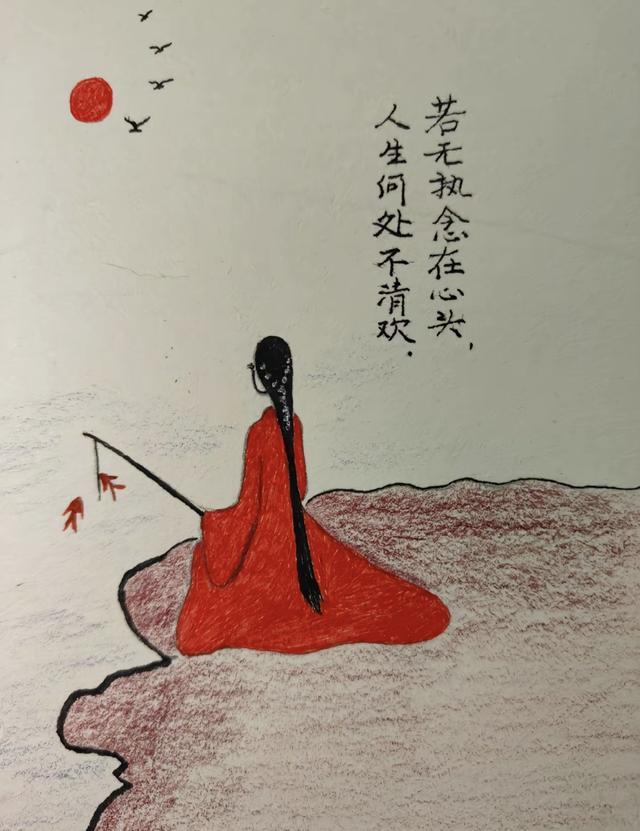 若无执念在心头，
人生何处不清欢．